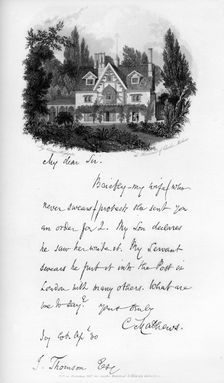 My dear Sir.
Barkly - my wife (who
never swears) protests she sent you
an order for 2. My Son declares
he saw her write it. My Servant
swears he put it into the Post in
London with many others. What are
we to say?
yours truly
C Mathews.
Ivy Cot. Ap 30
J. Thomson Esq